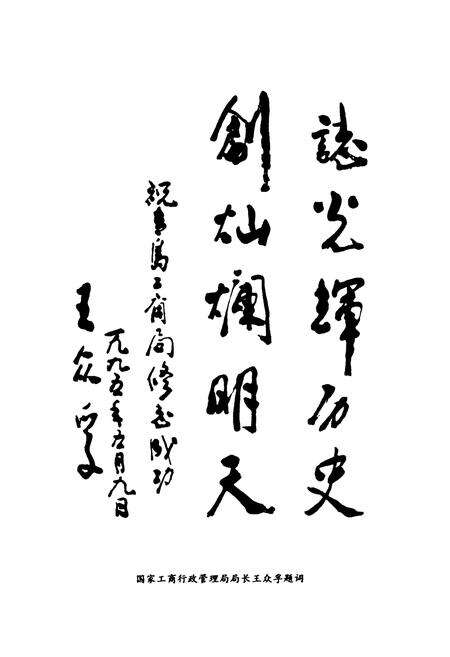 誌光輝历史
創灿爛明天
祝青岛工商局修志成功
一九九五年五月九日
王众孚
国家工商行政管理局局长王众孚题词